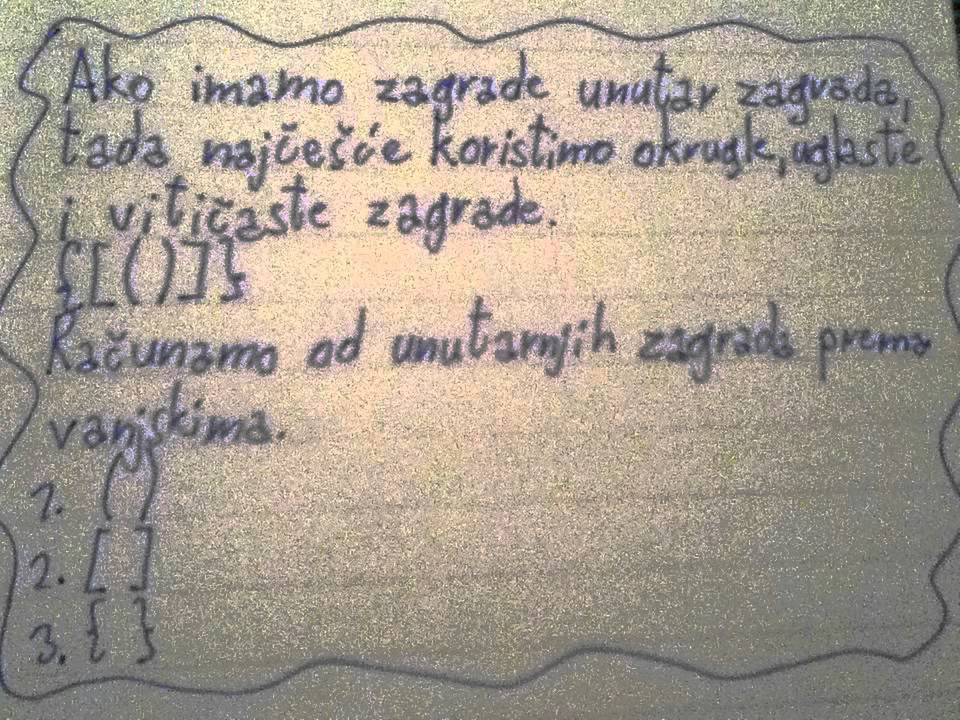 Ako imamo zagrade unutar zagrada,
tada najčešće koristimo okrugle, uglaste
i vitičaste zagrade.
{[()]}
Računamo od unutarnjih zagrada prema
vanjskima.
1. ( )
2. [ ]
3. { }